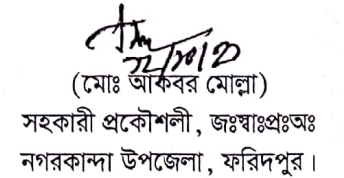 (মোঃ আকবর মোল্লা)
সহকারী প্রকৌশলী, জঃস্বাঃপ্রঃঅঃ
নগরকান্দা উপজেলা, ফরিদপুর।